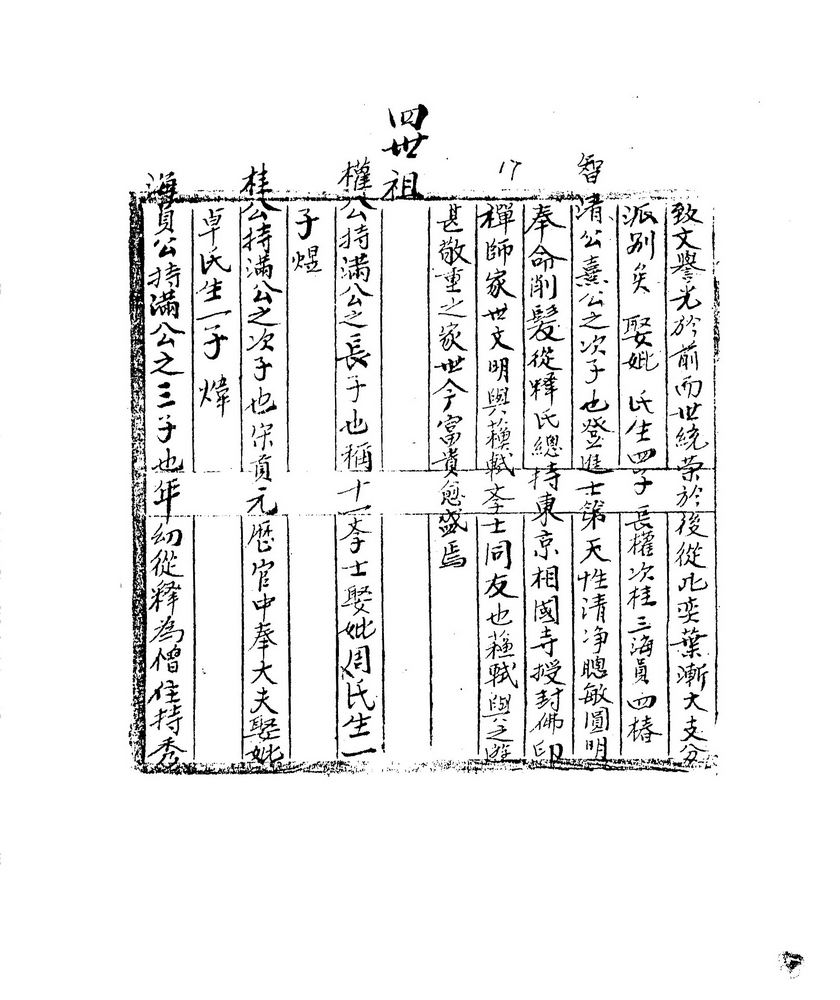 致文譽光於前而世統荣於後從此奕葉漸大支分
派别矣 娶妣 氏生四子長權次桂三海員四椿
智清公熹公之次子也登進士第天性清净聰敏圓明
17
奉命削髮從释氏總持東京相國寺授封佛印
禪師家世文明與蘓軾斈士同友也蘓軾與之遊
甚敬重之家世今富貴愈盛焉
四世祖
權公持滿公之長子也稱十一斈士娶妣周氏生一
子煜
桂公持滿公之次子也宋貢元歷官中奉大夫娶妣
卓氏生一子 煒
海員公持滿公之三子也年幼從釋為僧住持秀